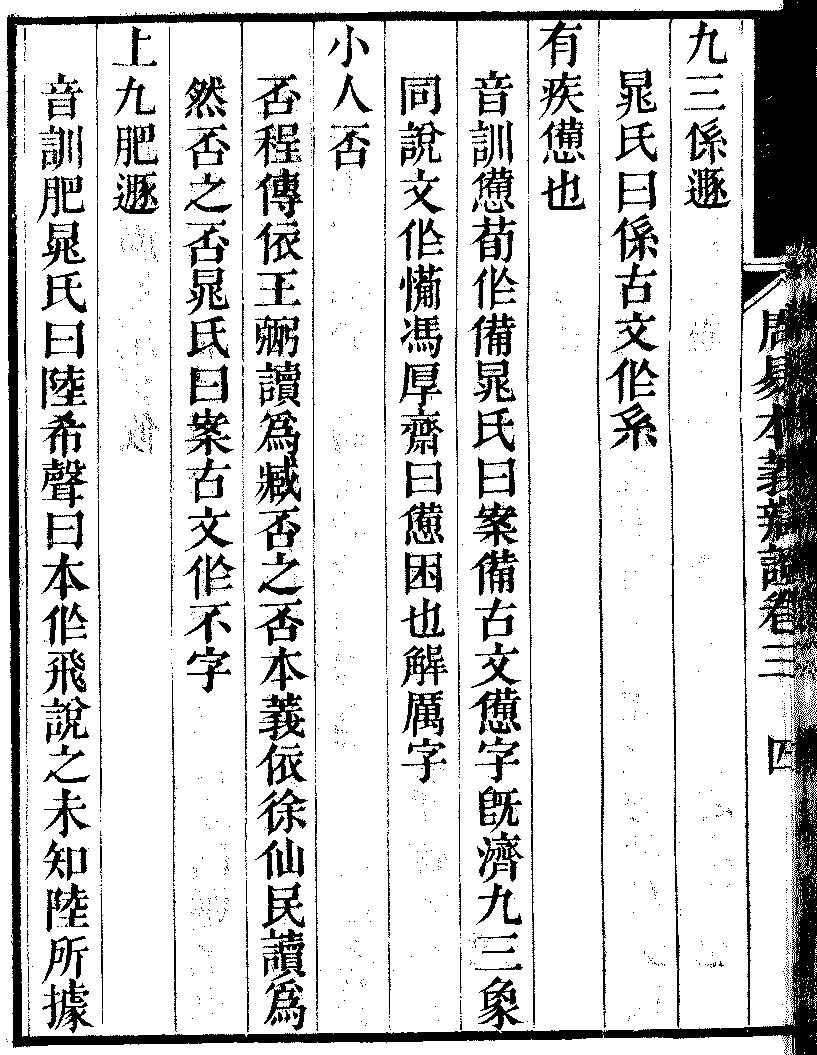 周易本義辯證卷三 四
九三係遯
晁氏曰係古文作系
有疾憊也
音訓憊荀作備晁氏曰案備古文憊字旣濟九三象
同說文作㥆馮厚齋曰憊困也解厲字
小人否
否程傳依王弼讀爲臧否之否本義依徐仙民讀爲
然否之否晁氏曰案古文作不字
上九肥遯
音訓肥晁氏曰陸希聲曰本作飛說之未知陸所據